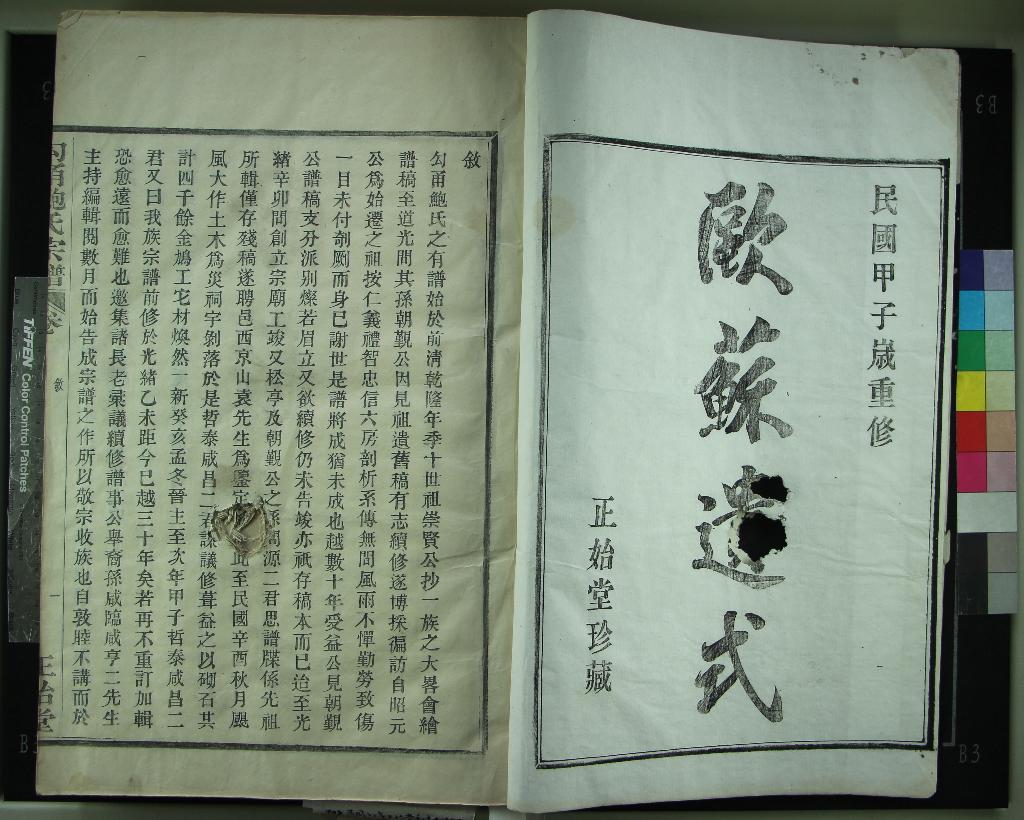 民國甲子歲重修
歐蘇遺式
正始堂珍藏
敘
勾甬鮑氏之有譜始於前清乾隆年季十世祖崇賢公抄一族之大畧會繪
譜稿至道光間其孫朝覲公因見祖遺舊稿有志續修遂博採徧訪自昭元
公爲始遷之祖按仁義禮智忠信六房剖析系傳無間風雨不憚勤勞致傷
一目未付剞劂而身已謝世是譜將成猶未成也越數十年受益公見朝覲
公譜稿支分派別燦若眉立又欲續修仍未告竣亦祇存稿本而已迨至光
緒辛卯間創立宗廟工竣又松亭及朝覲公之孫 源二君思譜牒係先祖
所輯僅存殘稿遂聘邑西京山袁先生爲鑒定 此至民國辛酉秋月颶
風大作土木爲災祠宇剝落於是哲泰咸昌二君謀議修葺益之以砌石其
計四千餘金鳩工宅材煥然一新癸亥孟冬晉主至次年甲子哲泰咸昌二
君又曰我族宗譜前修於光緒乙未距今已越三十年矣若再不重訂加輯
恐愈遠而愈難也邀集諸長老彙議續修譜事公舉裔孫咸臨咸亨二先生
主持編輯閱數月而始告成宗譜之作所以敬宗收族也自敦睦不講而於
勾甬鮑氏宗譜 卷
敘
一
正始堂
TIFFEN Color Control Patches
B3
B3